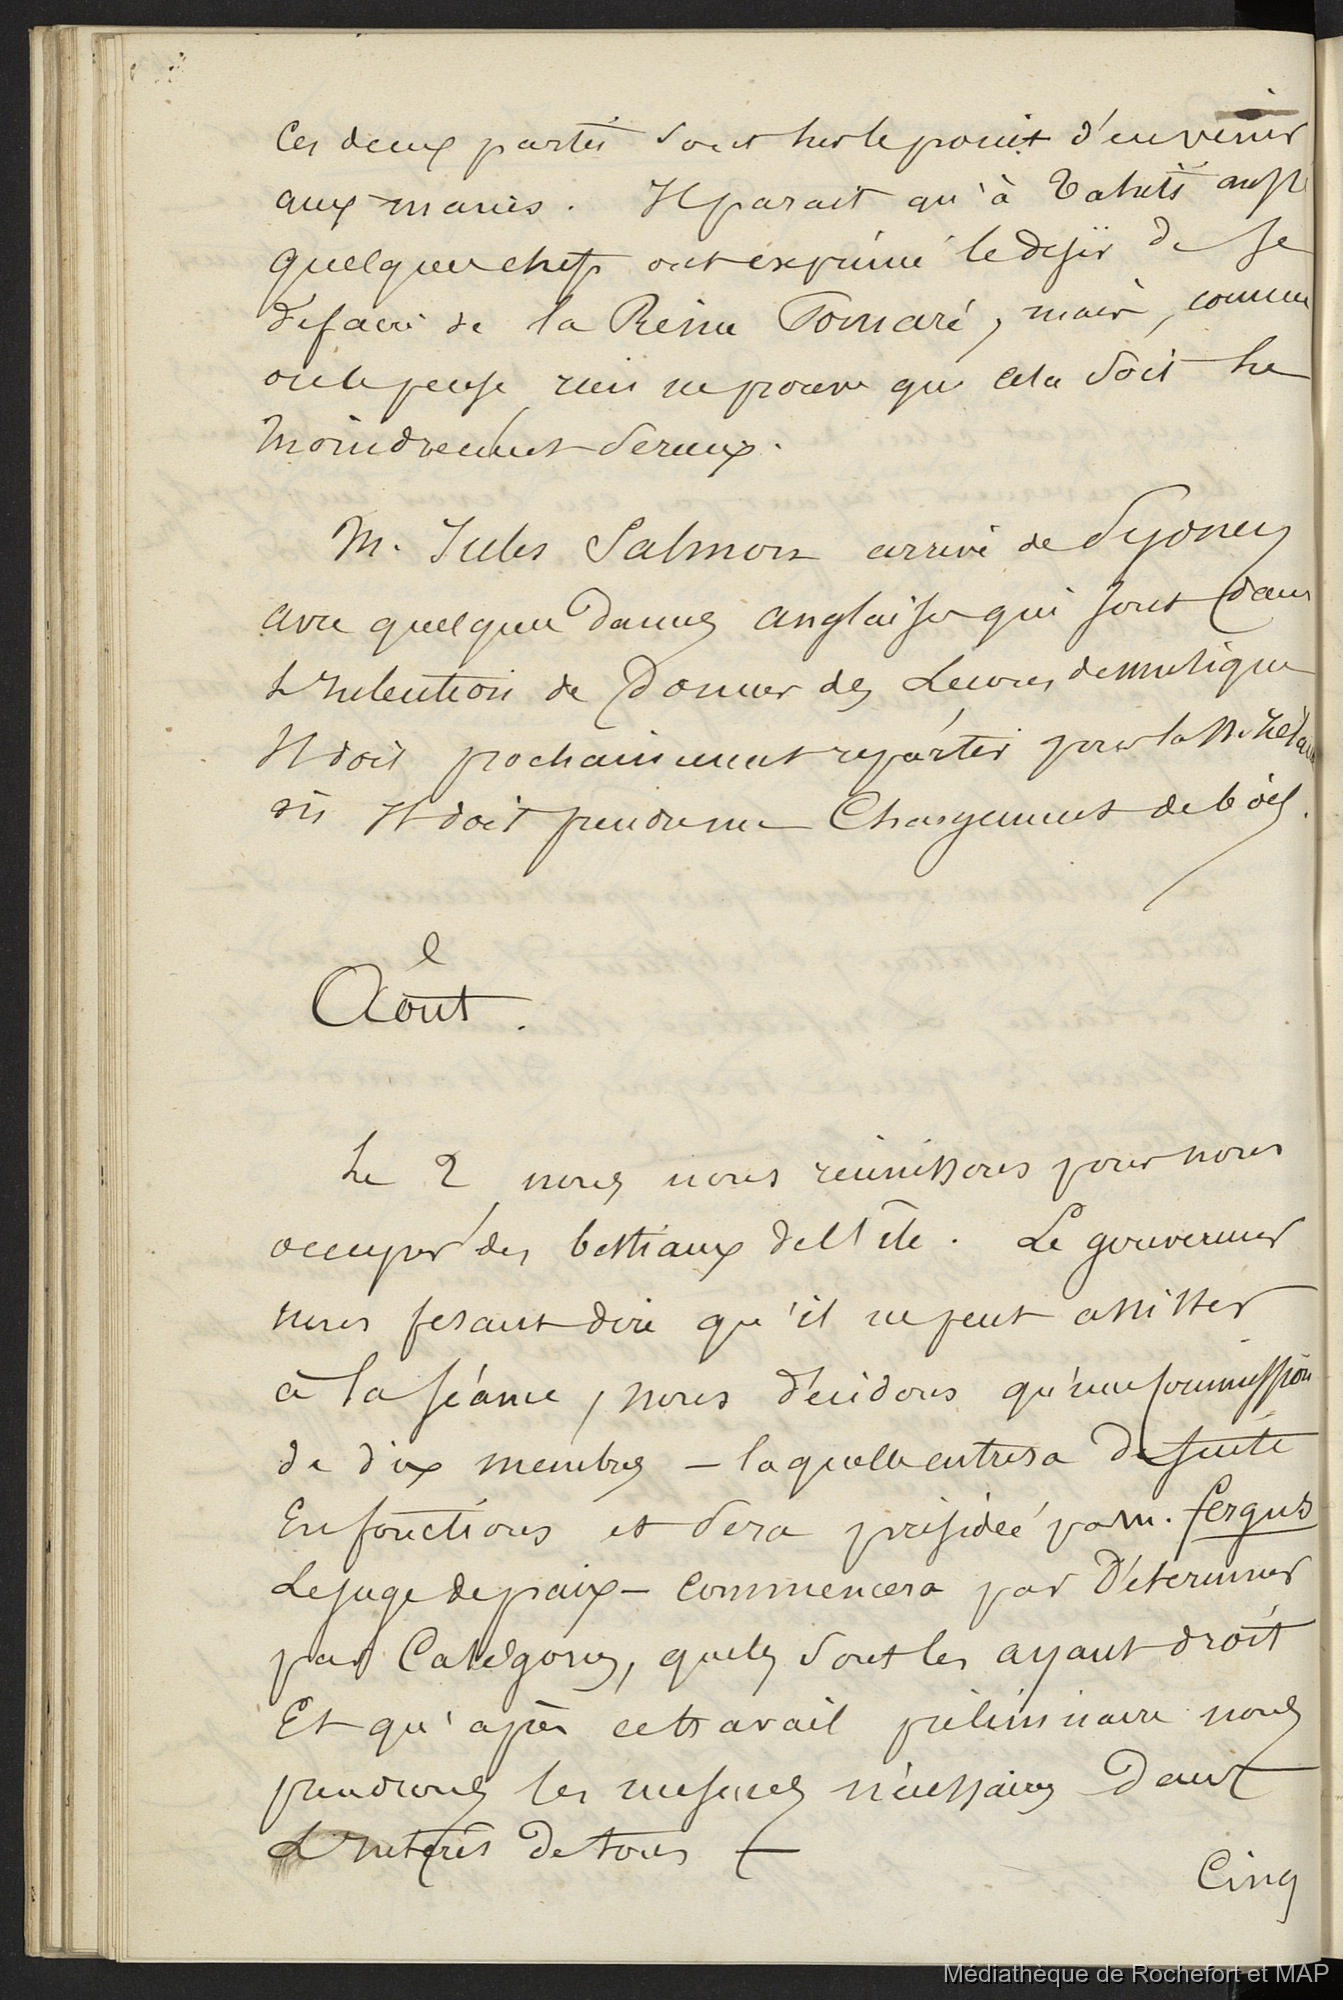 Ces deux partis sont sur le point d'en venir
aux mains. Il parait qu'à Tahiti aussi
quelques chefs ont exprimé le desir de se
défaire de la Reine Pomaré, mais, comme
on le pense, rien ne prouve que cela soit le
moindrement serieux.
M. Jules Salmon arrive de Sydney
avec quelques Dames anglaises qui sont dans
L'Intention de Donner des Lecons de musique
Il doit prochainement repartir pour la N.
où Il doit prendre un Chargement de bois.
Août.
Le 2 nous nous réunissons pour nous
occuper des bestiaux de l'île. Le gouverneur
nous fesant dire qu'il ne peut assister
à la séance, nous décidons qu'une Commission
de dix membres – laquelle entrera de suite
En fonctions et sera présidée par M. fergus
Le juge de paix – commencera par Déterminer
par Catégories, quels sont les ayant droit
Et qu'après ce travail préliminaire nous
prendrons les mesures nécessaires Dans
L'Intérêt De tous
Cinq
Médiathèque de Rochefort et MAP